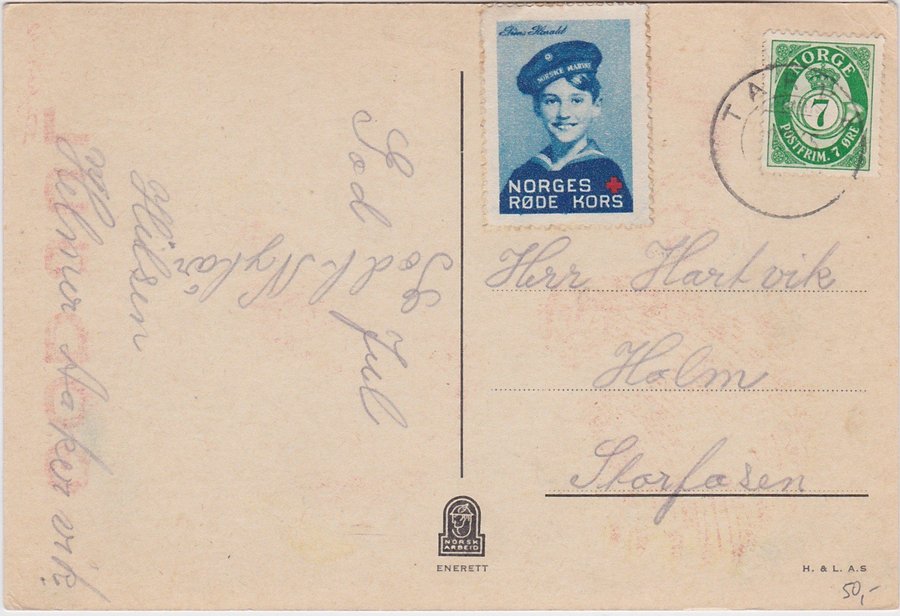 God Jul
Godt Nyttår
Hilsen
Prins Harald
NORSKE MARINE
NORGES
RØDE KORS
NORGE
7
POSTFRIM. 7 ØRE
Herr Hartvik
Holm
Storfosen
NORSK
ARBEID
ENERETT
H. & L. A.S
50,-